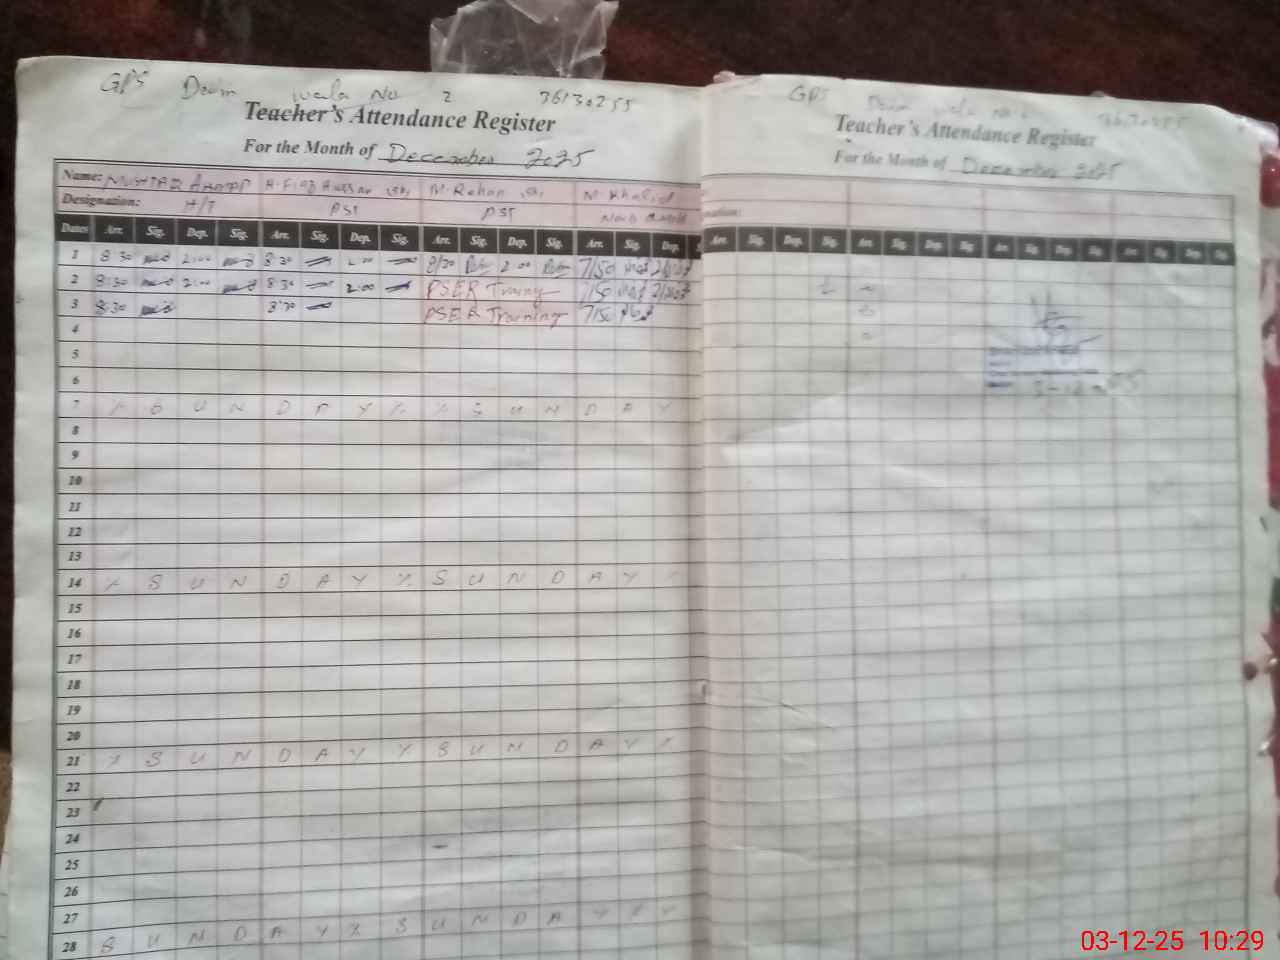 GPS Daim wala No 2 36130255
Teacher's Attendance Register
For the Month of December 2025
Name: MUSHTAQ AHMAD M. Rehan M Khalid
Designation: H/T PST PST
Dates Arr. Sig. Dep. Sig. Arr. Sig. Dep. Sig. Arr. Sig. Dep. Sig. Arr. Sig. Dep.
1 8:30 2:00 8:30 2:00 8/30 2:00 7/50
2 8:30 2:00 8:30 2:00 PSER Training 7/50
3 8:30 8:30 PSER Training 7/50
4
5
6
7 X S U N D A Y X X S U N D A Y
8
9
10
11
12
13
14 X S U N D A Y X S U N D A Y X
15
16
17
18
19
20
21 X S U N D A Y Y S U N D A Y X
22
23
24
25
26
27
28 S U N D A Y X S U N D A Y X Y
GPS Daim wala No 2
Teacher's Attendance Register
For the Month of December 2025
Arr. Sig. Dep. Sig. Arr. Sig. Dep. Sig. Arr. Sig. Dep. Sig. Arr. Sig. Dep. Sig.
03-12-25 10:29